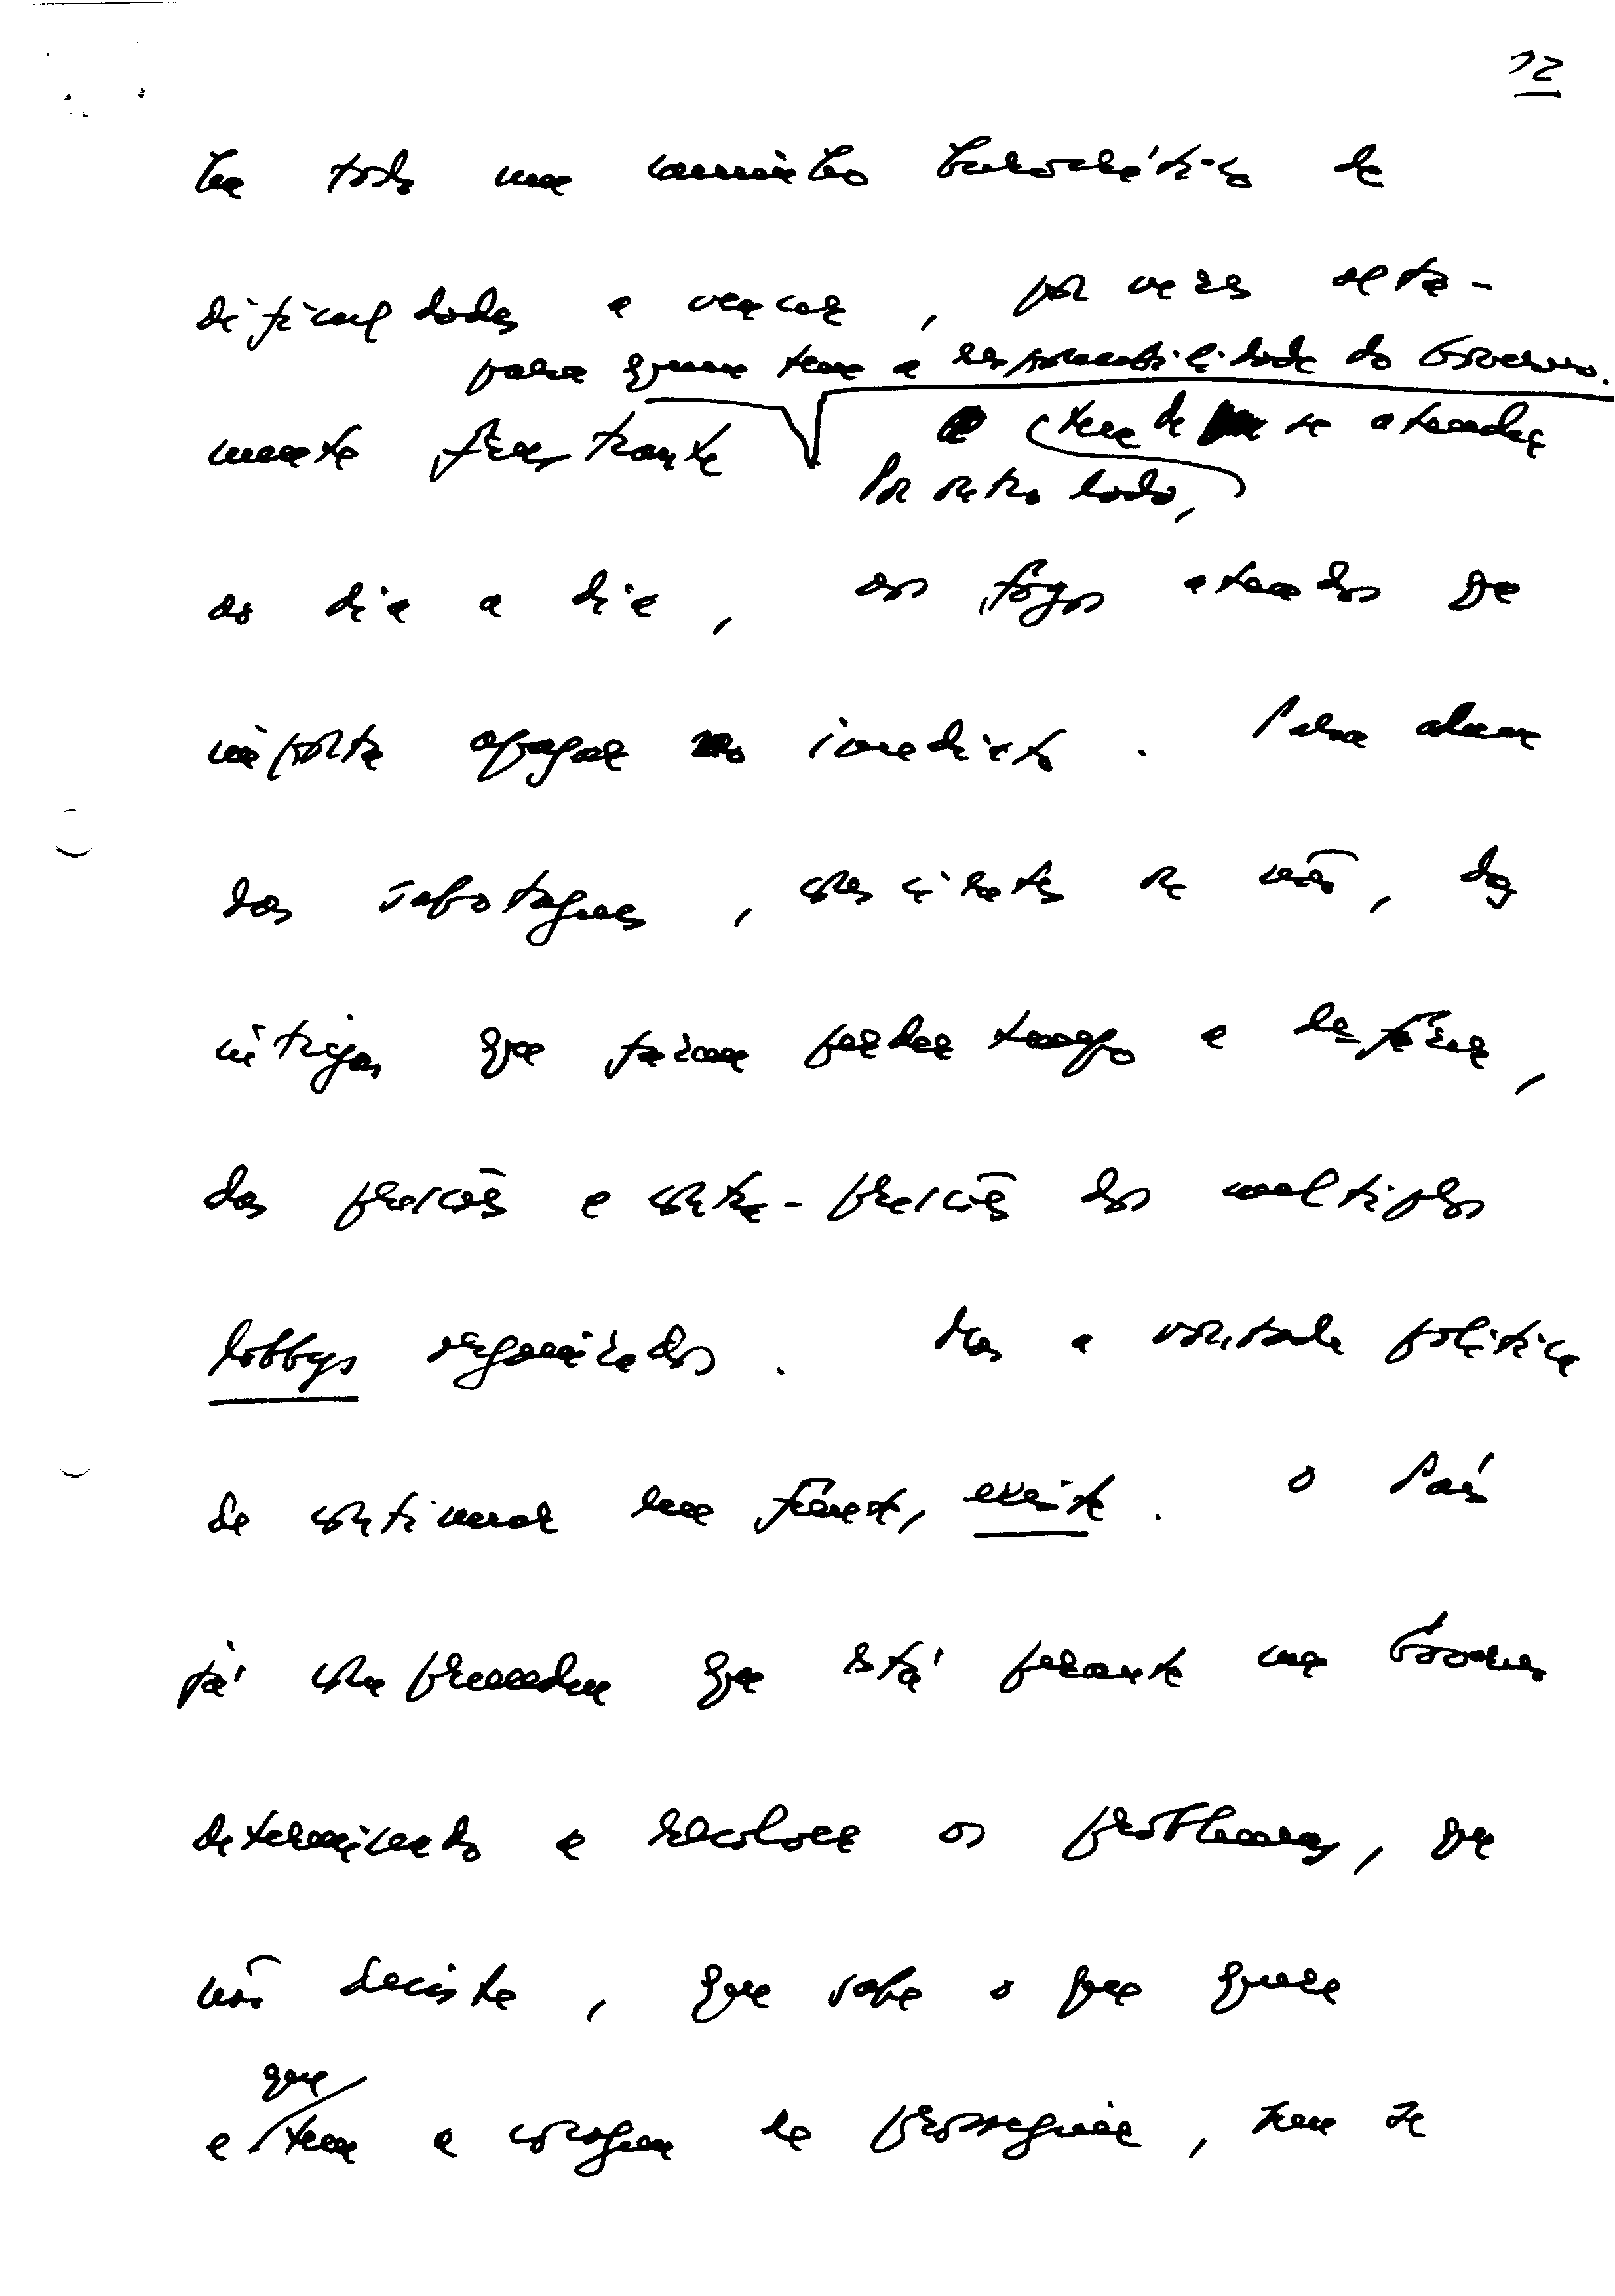 12
há todo um caminho burocrático de
dificuldades a vencer, por vezes alta-
para quem tem a responsabilidade do Governo.
mente frustrante tem de se atender
Por outro lado,
ao dia a dia, aos fogos ateados que
importa apagar no imediato. Para além
das sabotagens, conscientes ou não, das
intrigas que fazem perder tempo e desfazer,
das pressões e contra-pressões dos multiplos
lobbys organizados. Mas a vontade politica
de continuar em frente, existe. O País
já compreendeu que está perante um Governo
determinado a resolver os problemas, que
não desiste, que sabe o que quer
que
e tem a coragem de prosseguir, sem se